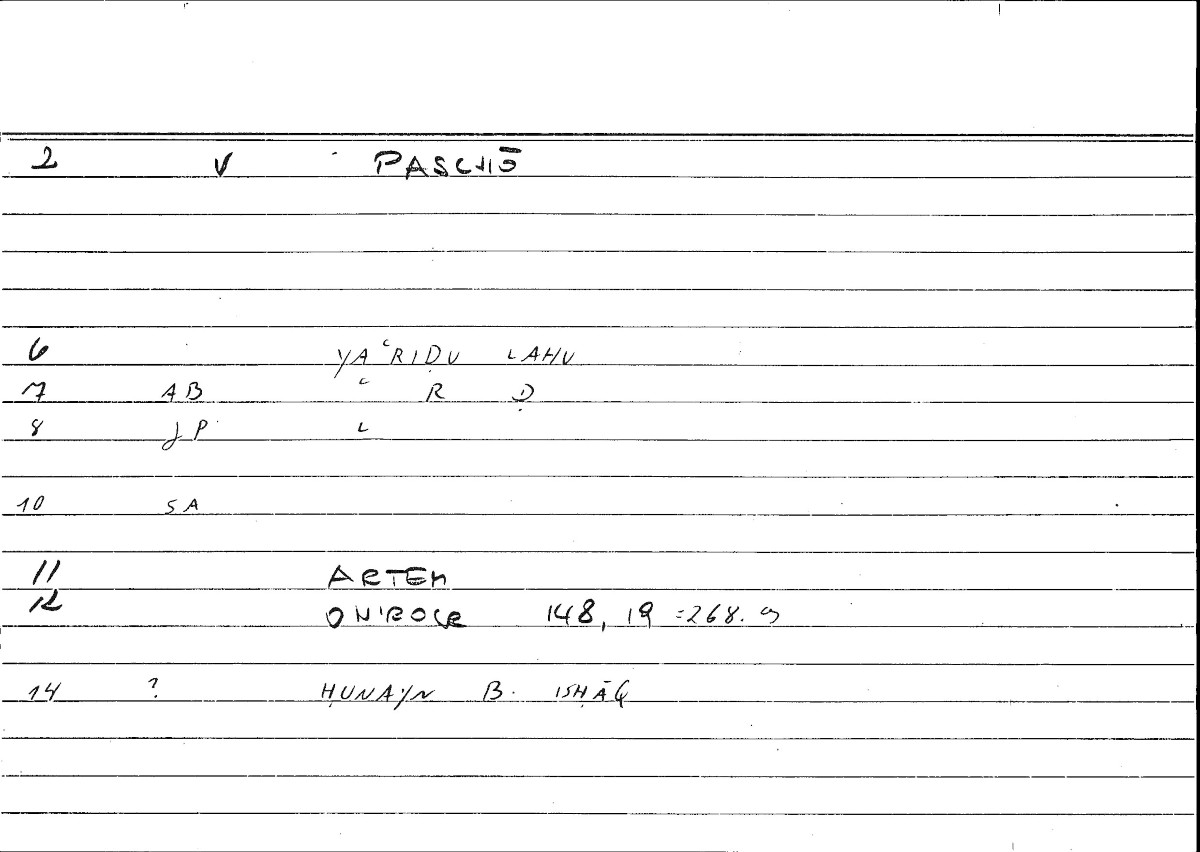 2 V PASCHŌ
6 YAʿRIḌU LAHU
7 AB ʿ R Ḍ
8 JP L
10 SA
11 ARTEM
12 ONIROCR 148, 19 =268. 9
14 ? ḤUNAYN B. ISḤĀQ